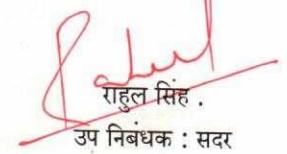 Rahul
राहुल सिंह .
उप निबंधक : सदर